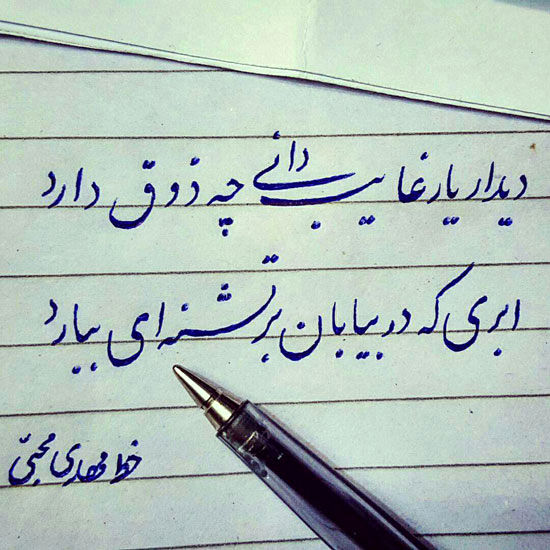 دیدار یار غایب دانی چه ذوق دارد
ابری که در بیابان بر تشنه ای ببارد
خط مهدی محبی